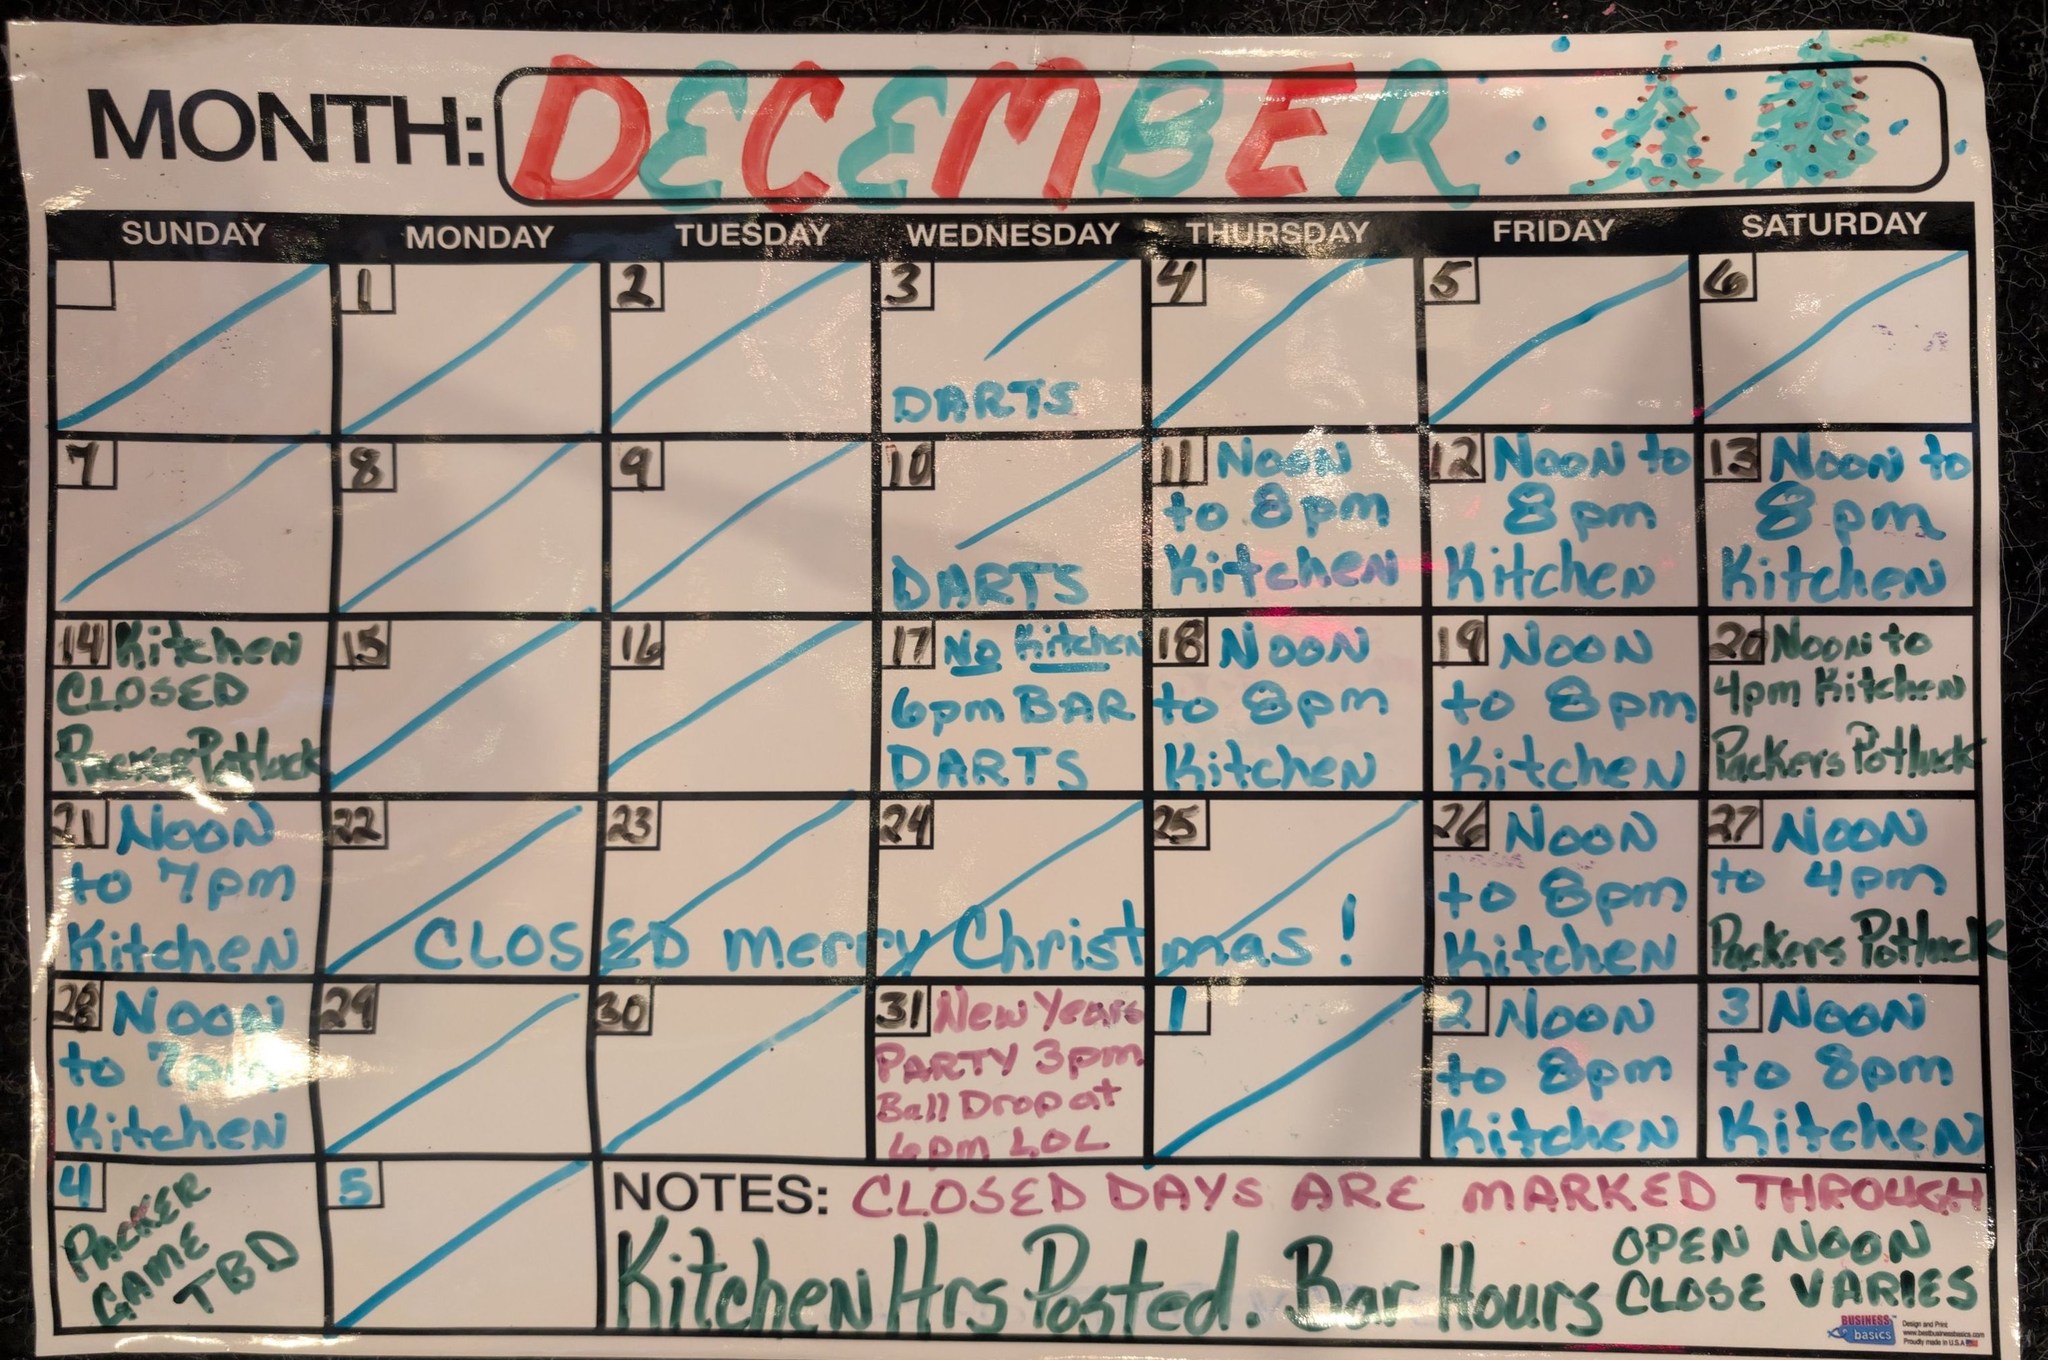 MONTH: DECEMBER
SUNDAY MONDAY TUESDAY WEDNESDAY THURSDAY FRIDAY SATURDAY
1
2
3
DARTS
4
5
6
7
8
9
10
DARTS
11 Noon
to 8pm
Kitchen
12 Noon to
8pm
Kitchen
13 Noon to
8pm
Kitchen
14 Kitchen
CLOSED
Packer Potluck
15
16
17 No Kitchen
6pm BAR
DARTS
18 Noon
to 8pm
Kitchen
19 Noon
to 8pm
Kitchen
20 Noon to
4pm Kitchen
Packers Potluck
21 Noon
to 7pm
Kitchen
22
23
24
25
CLOSED merry Christmas!
26 Noon
to 8pm
Kitchen
27 Noon
to 4pm
Packers Potluck
28 Noon
to 7pm
Kitchen
29
30
31 New Years
PARTY 3pm
Ball Drop at
6pm LOL
1
2 Noon
to 8pm
Kitchen
3 Noon
to 8pm
Kitchen
4
PACKER
GAME
TBD
5
NOTES: CLOSED DAYS ARE MARKED THROUGH
Kitchen Hrs Posted. Bar Hours
OPEN NOON
CLOSE VARIES
BUSINESS
basics
Design and Print
www.bestbusinessbasics.com
Proudly made in U.S.A